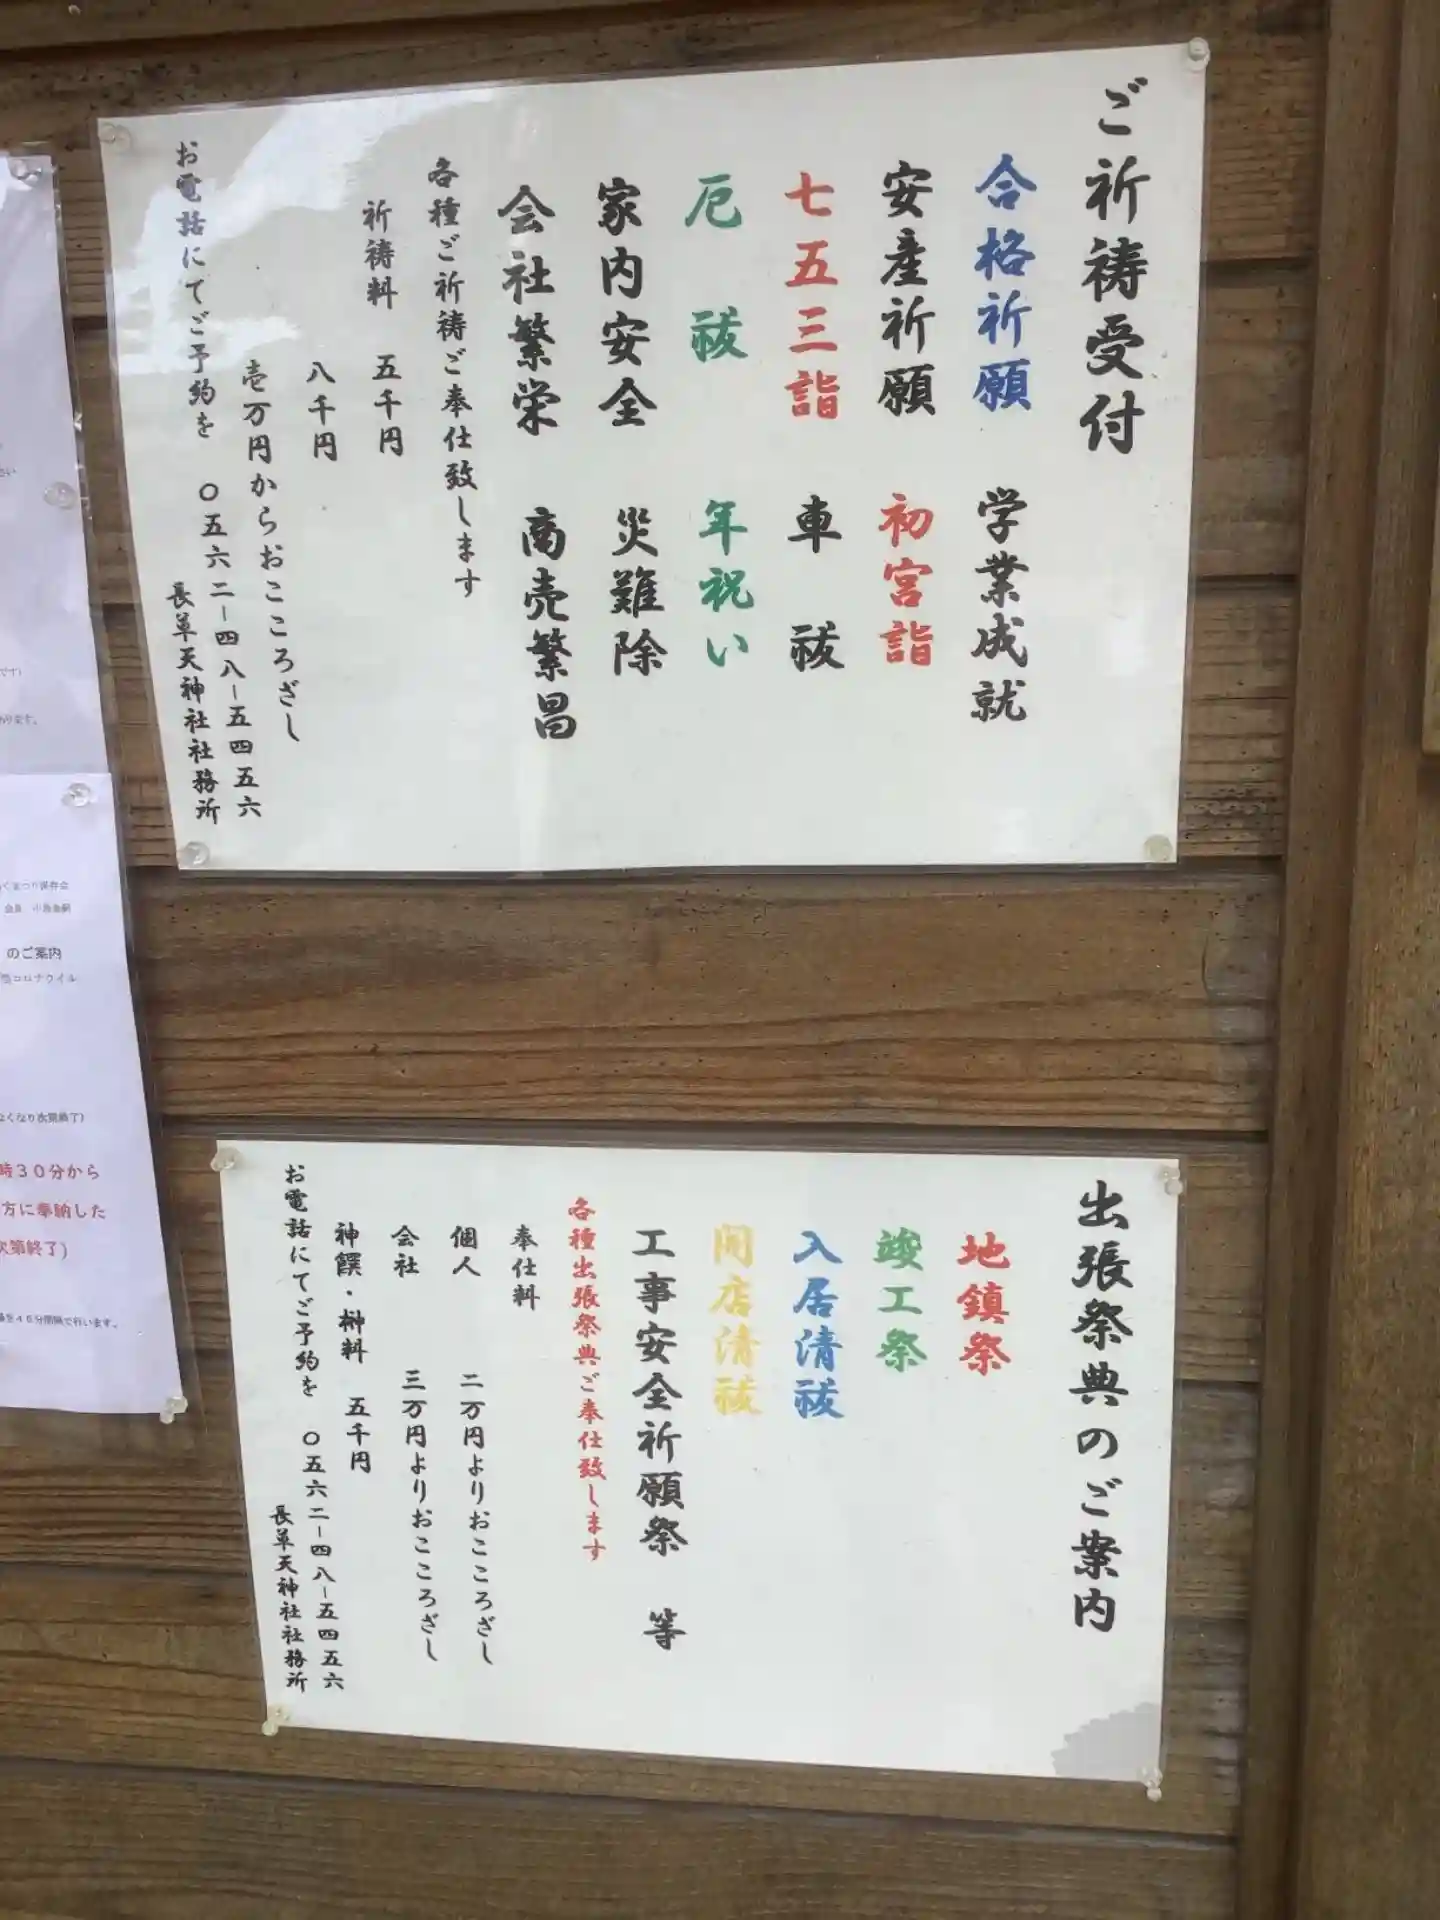 ご祈祷受付
合格祈願 学業成就
安産祈願 初宮詣
七五三詣 車 祓
厄 祓 年祝い
家内安全 災難除
会社繁栄 商売繁昌
各種ご祈祷ご奉仕致します
祈祷料 五千円
八千円
壱万円からおこころざし
お電話にてご予約を 〇五六二-四八-五四五六
長草天神社社務所
出張祭典のご案内
地鎮祭
竣工祭
入居清祓
開店清祓
工事安全祈願祭 等
各種出張祭典ご奉仕致します
奉仕料
個人 二万円よりおこころざし
会社 三万円よりおこころざし
神饌・榊料 五千円
お電話にてご予約を 〇五六二-四八-五四五六
長草天神社社務所
です)
あります。
くまつり保存会
のご案内
コロナウイル
なくなり次第終了)
時30分から
方に奉納した
次第終了)
を45分間隔で行います。